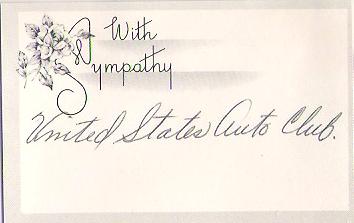 With
Sympathy
United States Auto Club.